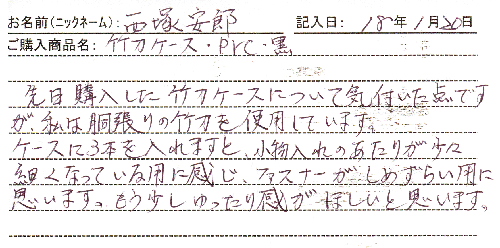 お名前(ニックネーム): 西塚安郎 記入日: 18年1月20日
ご購入商品名: 竹刀ケース・PVC・黒
先日購入した竹刀ケースについて気付いた点です
が、私は胴張りの竹刀を使用しています。
ケースに3本を入れますと、小物入れのあたりが少々
細くなっている用に感じ、ファスナーがしめずらい用に
思います。もう少しゆったり感がほしいと思います。